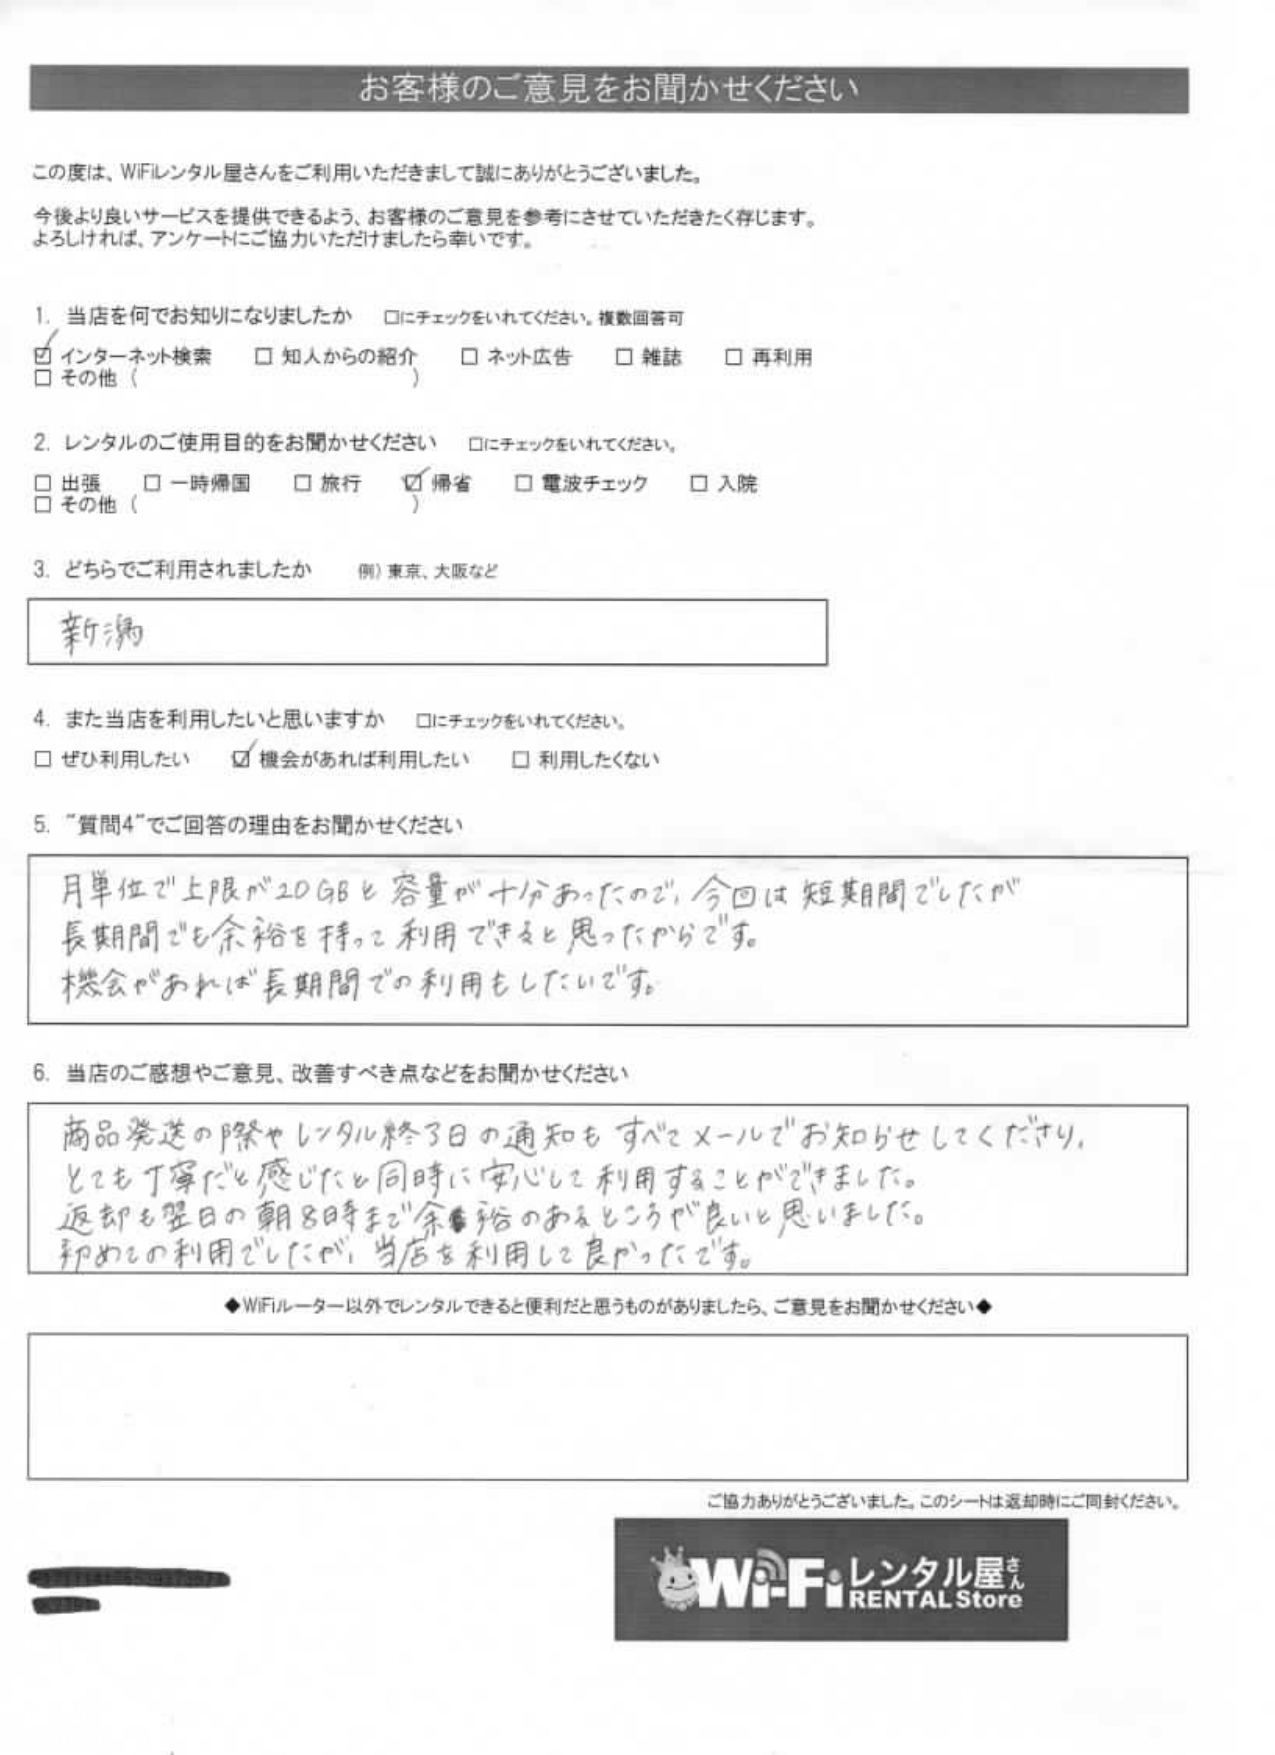 お客様のご意見をお聞かせください
この度は、WiFiレンタル屋さんをご利用いただきまして誠にありがとうございました。
今後より良いサービスを提供できるよう、お客様のご意見を参考にさせていただきたく存じます。
よろしければ、アンケートにご協力いただけましたら幸いです。
1. 当店を何でお知りになりましたか □にチェックをいれてください。複数回答可
☑ インターネット検索 □ 知人からの紹介 □ ネット広告 □ 雑誌 □ 再利用
□ その他 ( )
2. レンタルのご使用目的をお聞かせください □にチェックをいれてください。
□ 出張 □ 一時帰国 □ 旅行 ☑ 帰省 □ 電波チェック □ 入院
□ その他 ( )
3. どちらでご利用されましたか 例) 東京、大阪など
新潟
4. また当店を利用したいと思いますか □にチェックをいれてください。
□ ぜひ利用したい ☑ 機会があれば利用したい □ 利用したくない
5. "質問4"でご回答の理由をお聞かせください
月単位で上限が20GBと容量が十分あったので、今回は短期間でしたが
長期間でも余裕を持って利用できると思ったからです。
機会があれば長期間での利用もしたいです。
6. 当店のご感想やご意見、改善すべき点などをお聞かせください
商品発送の際やレンタル終了日の通知もすべてメールでお知らせしてくださり、
とても丁寧だと感じたと同時に安心して利用することができました。
返却も翌日の朝8時まで余裕のあるところが良いと思いました。
初めての利用でしたが、当店を利用して良かったです。
◆WiFiルーター以外でレンタルできると便利だと思うものがありましたら、ご意見をお聞かせください◆
ご協力ありがとうございました。このシートは返却時にご同封ください。
Wi-Fiレンタル屋さん
RENTAL Store